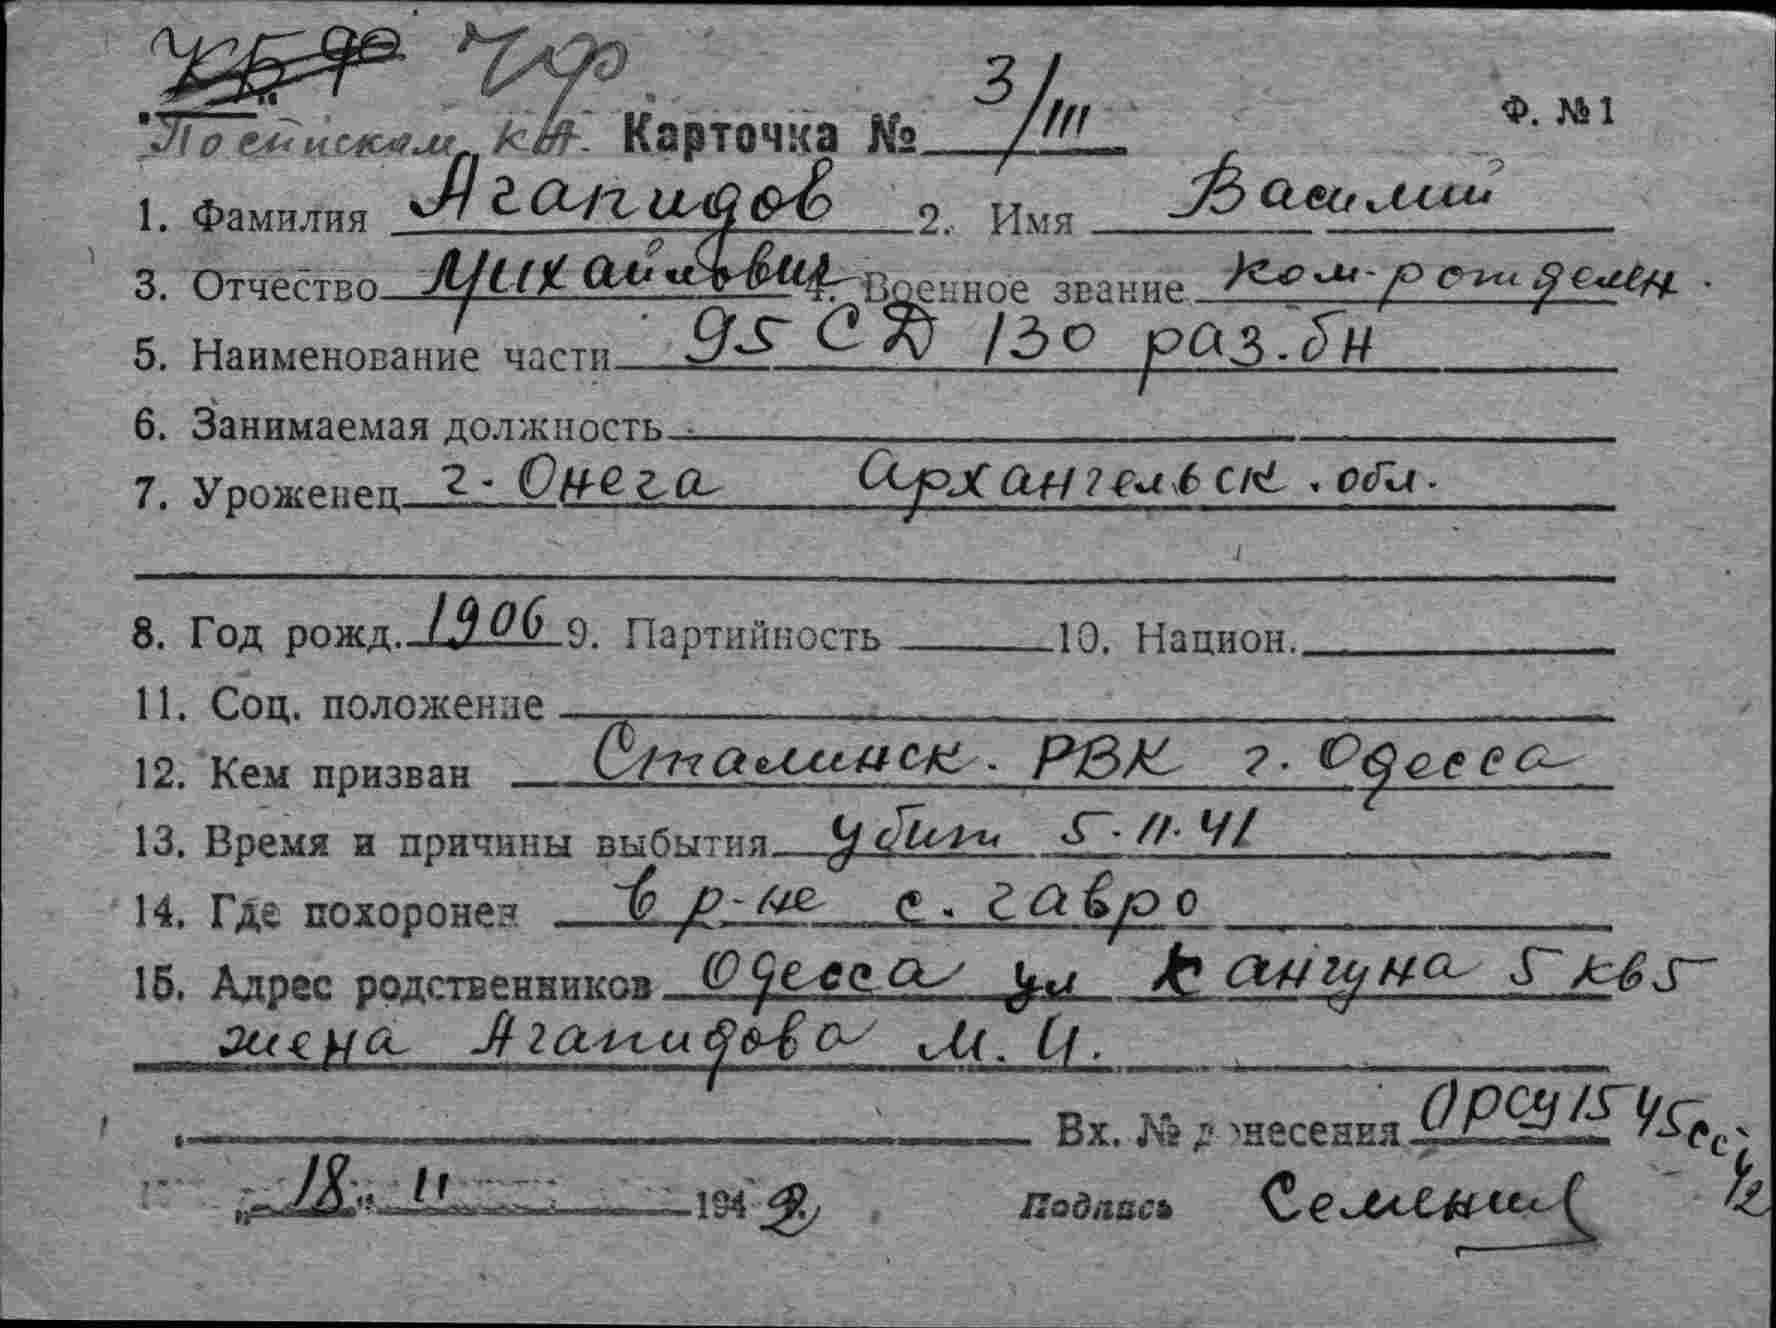 Ф. №1
По спискам КА. Карточка № 3/III
1. Фамилия Агапидов 2. Имя Василий
3. Отчество Михайлович 4. Военное звание ком-р отделен.
5. Наименование части 95 СД 130 раз.бн
6. Занимаемая должность
7. Уроженец г. Онега Архангельск. обл.
8. Год рожд. 1906 9. Партийность 10. Национ.
11. Соц. положение
12. Кем призван Сталинск. РВК г. Одесса
13. Время и причины выбытия убит 5.11.41
14. Где похоронен в р-не с. гавро
15. Адрес родственников Одесса ул Кангуна 5 кв 5
жена Агапидова М. И.
Вх. № донесения ОРСУ 1545сс
"18" 11 1942 Подпись